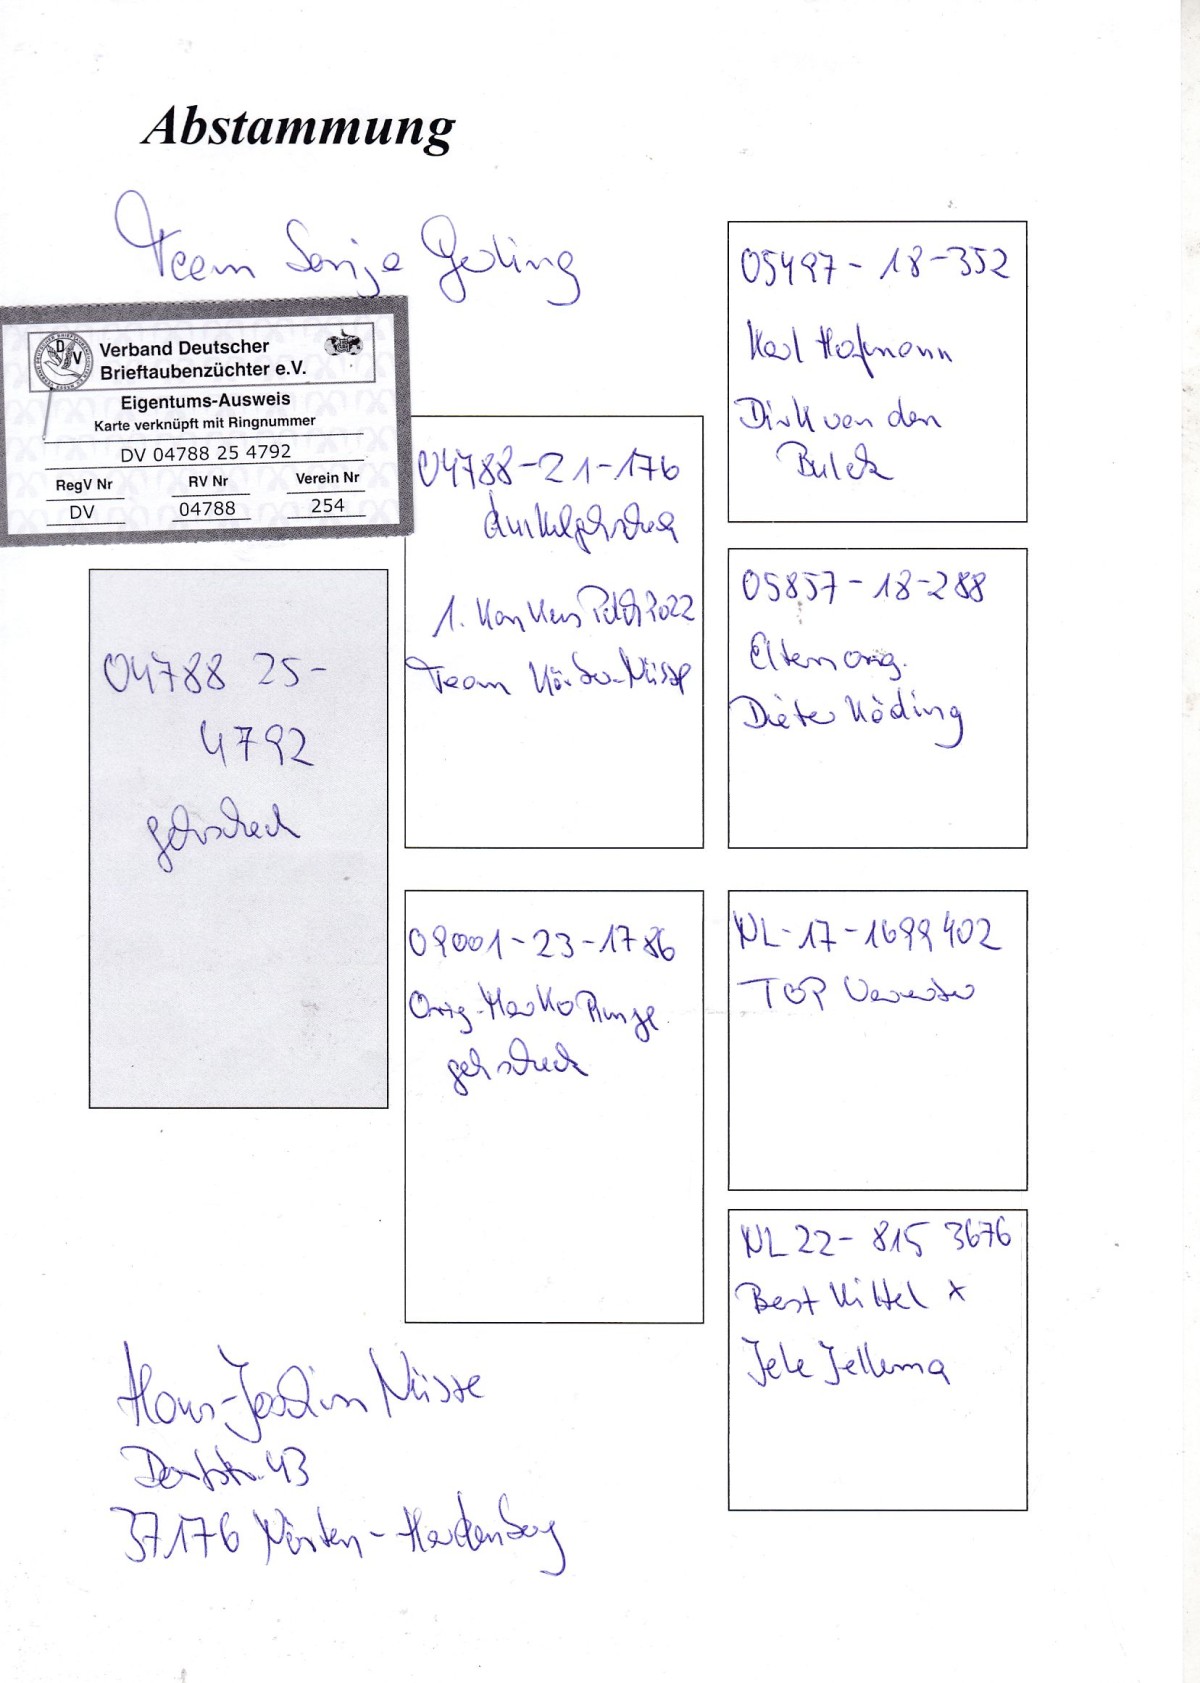 Abstammung
Team Sonja Göding
Verband Deutscher
Brieftaubenzüchter e.V.
Eigentums-Ausweis
Karte verknüpft mit Ringnummer
DV 04788 25 4792
RegV Nr RV Nr Verein Nr
DV 04788 254
04788 25-
4792
gehscheck
04788-21-176
dunkelgehscheck
1. Konkurs 2022
Team Nüsse
09001-23-1786
Orig. Runge
gehscheck
05497-18-352
Karl Hofmann
Dirk van den
Bulck
05857-18-288
Eltern orig.
Dieter Köding
NL-17-1699402
TOP Vererber
NL 22-815 3676
Best Kittel x
Jelle Jellema
Hans-Joachim Nüsse
43
37176 Nörten-Hardenberg